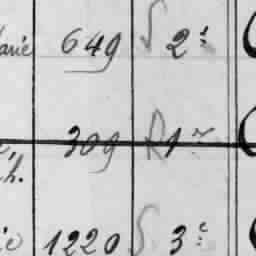 arie 649 S 2e
309 R 1er
h.
ie 1220 S 3e